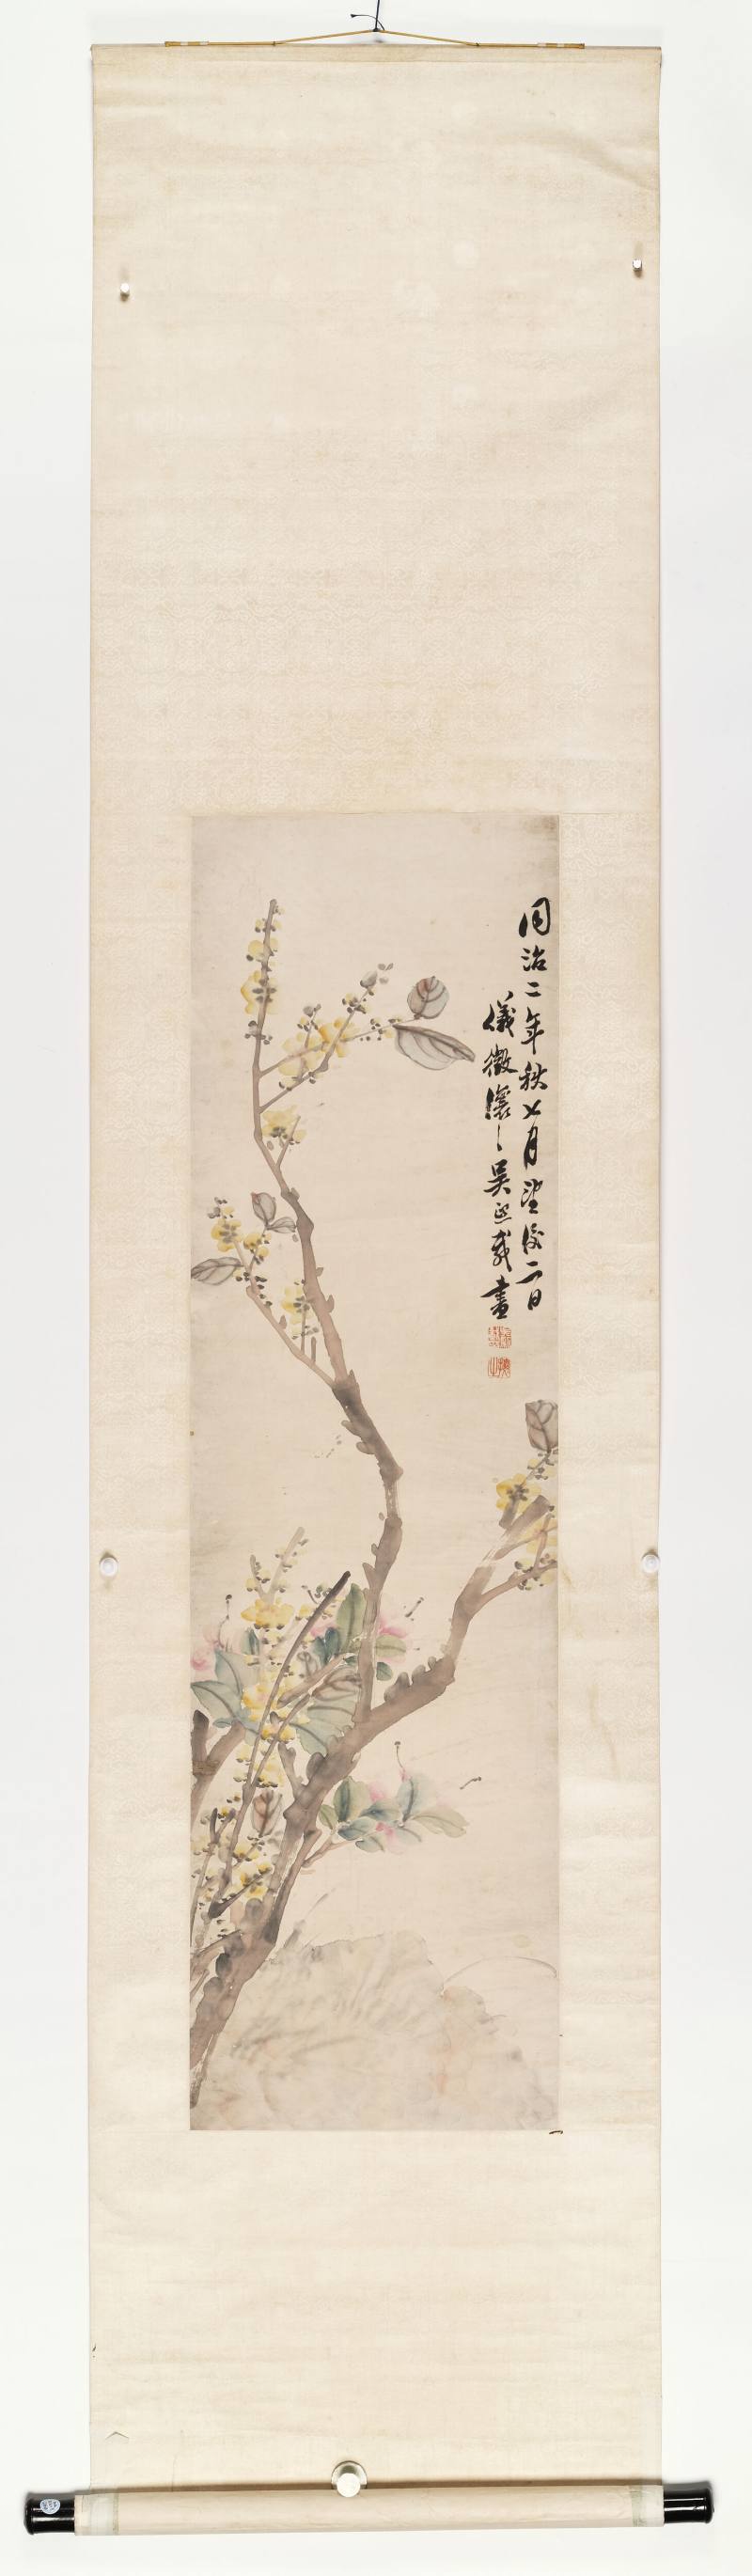 同治二年秋七月望後二日
儀徵讓之吳熙載畫